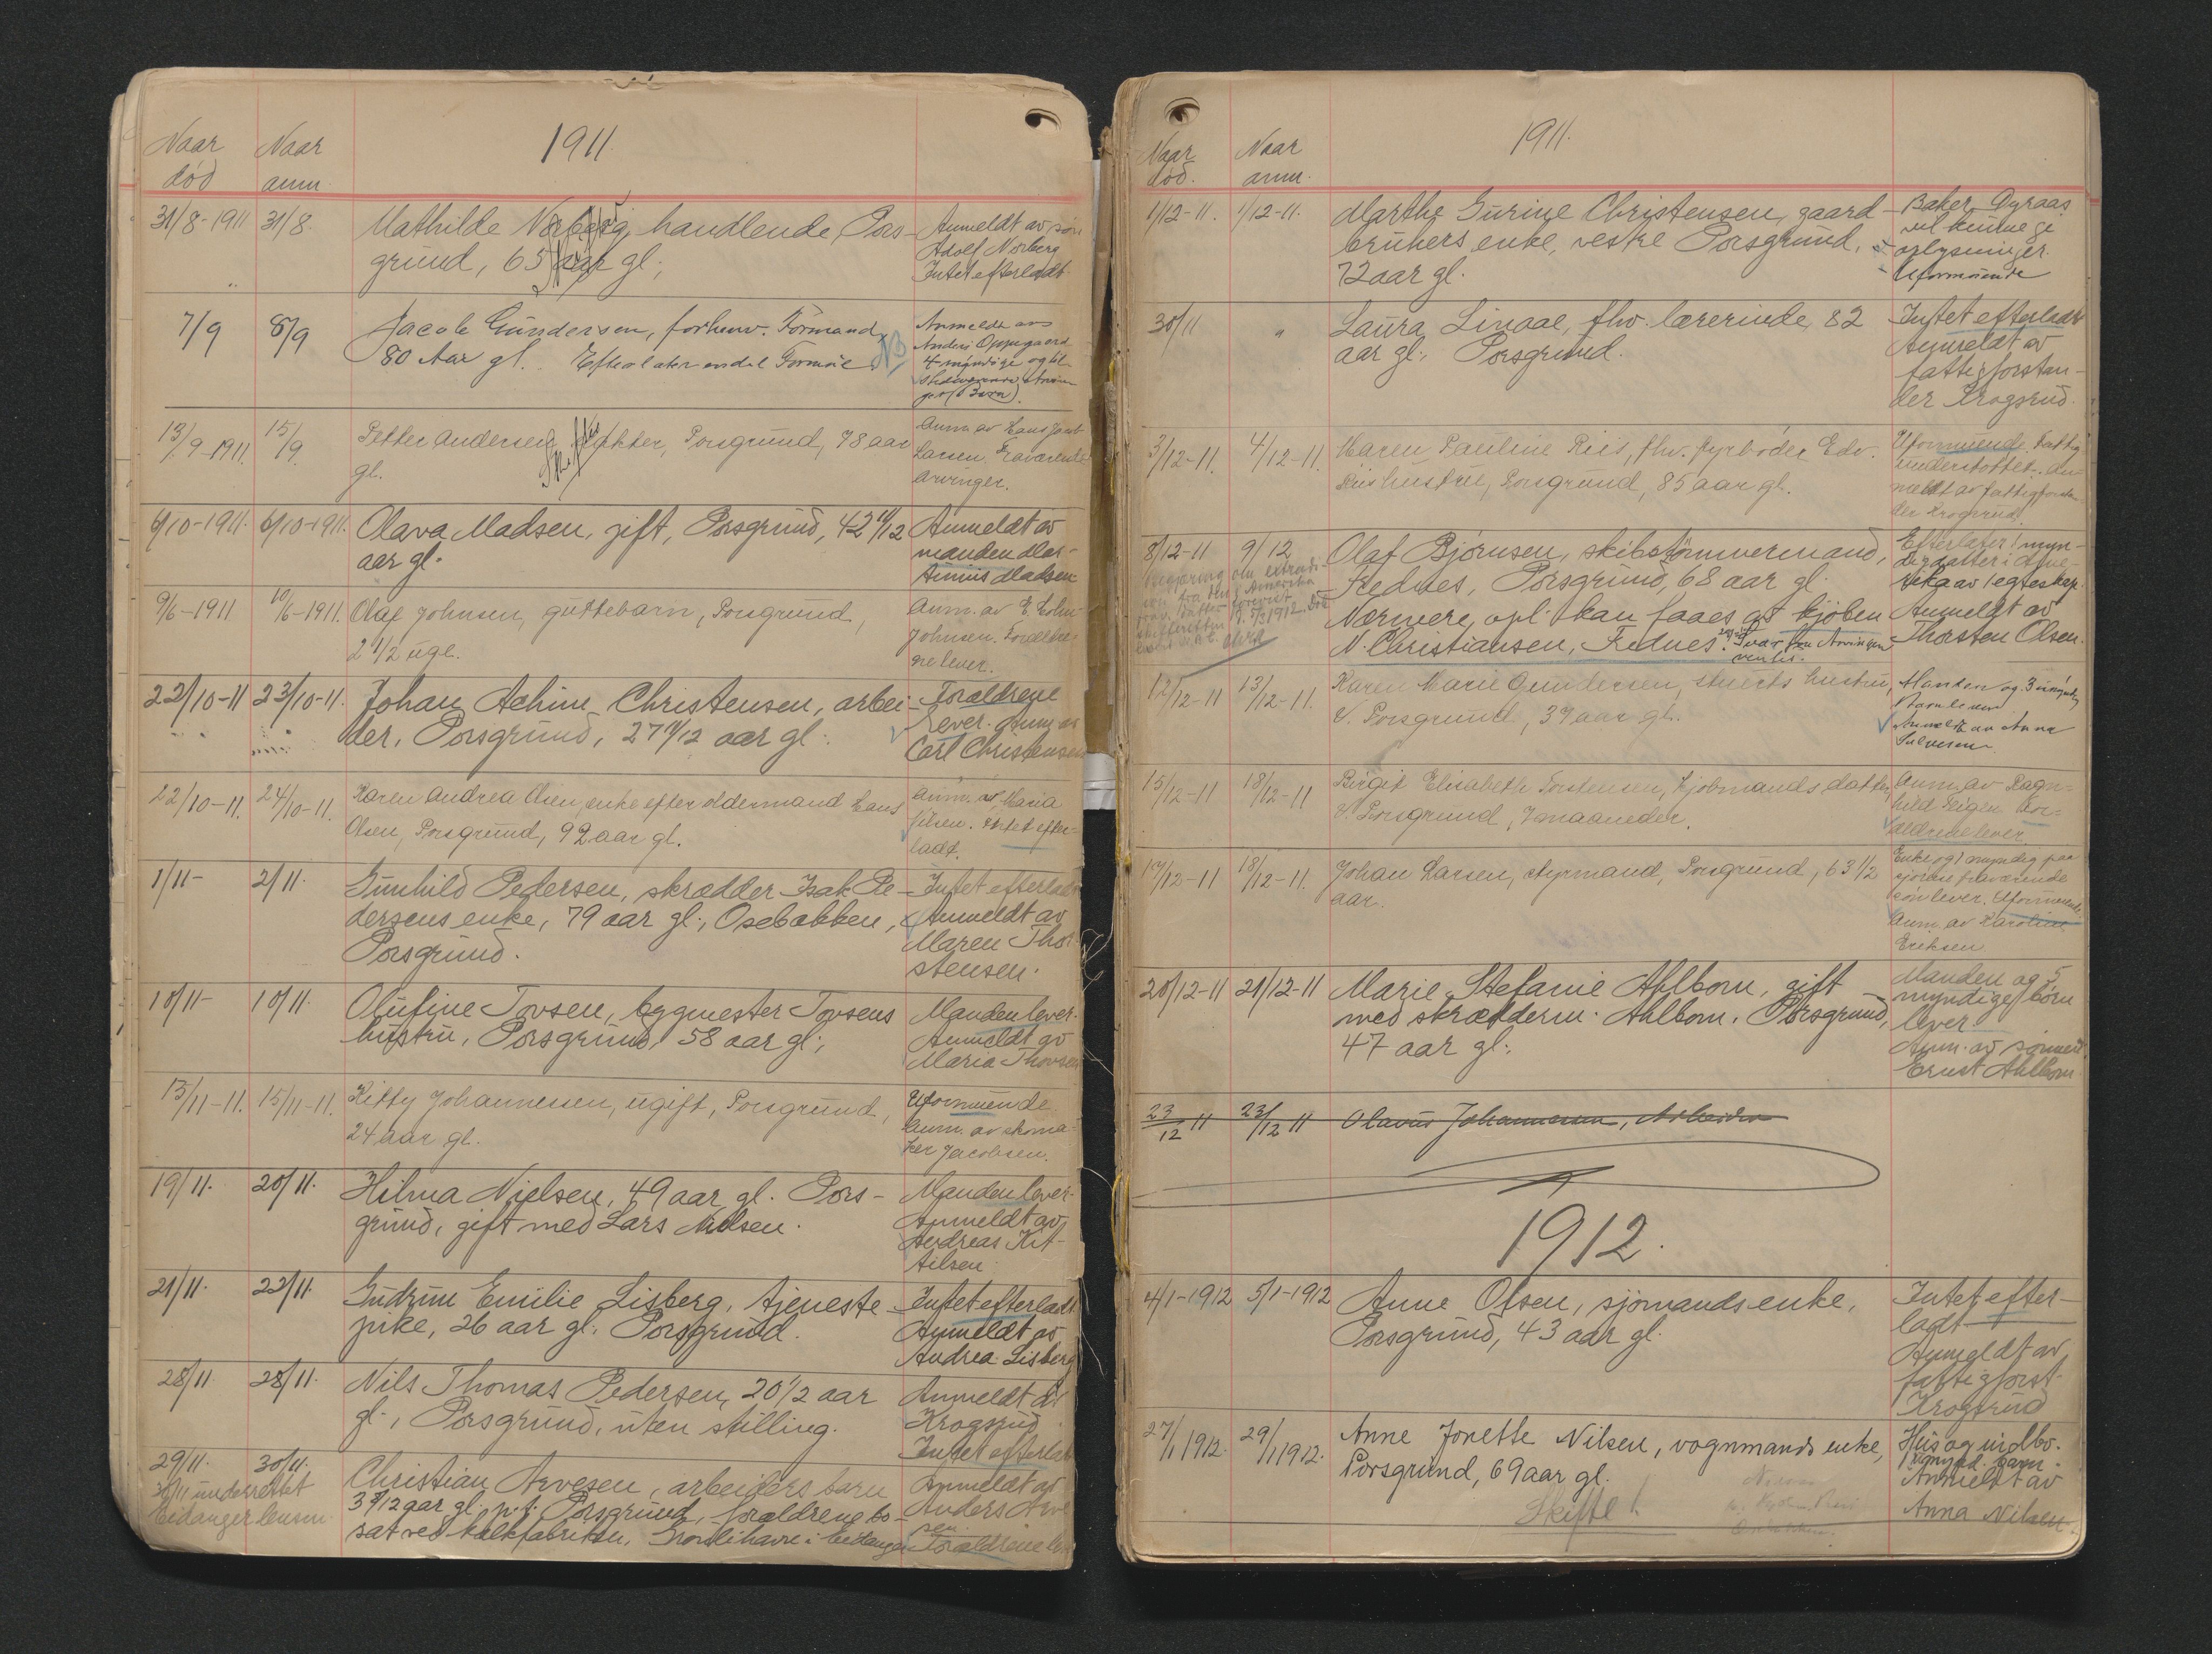 1911
Naar død
Naar anm
31/8-1911 31/8.
Mathilde Norberg, handlende, Pors-
grund, 65 aar gl.,
Anmeldt av søn
Adolf Norberg
Intet efterladt
7/9 8/9
Jacob Gundersen, forhenv. Formand,
80 Aar gl. Efterlater endel Formue
NB
Anmeldt av
Anders Oppegaard
4 myndige og til-
13/9-1911. 15/9.
Petter Andersen, Porsgrund, 78 aar
gl.
Skifte
Anm. av Hans Jacob
Larsen. Fraværende
arvinger.
6/10-1911. 6/10-1911.
Olava Madsen, gift, Porsgrund, 42 10/12
aar gl.
Anmeldt av
manden Mar-
tinius Madsen
9/6-1911 10/6-1911.
Olaf Johnsen, guttebarn, Porsgrund,
2 1/2 uge.
Anm. av E. Holm
Johnsen. Forældre-
ne lever.
22/10-11 23/10-11.
Johan Achim Christensen, arbei-
der, Porsgrund, 27 11/12 aar gl.
Forældrene
lever. Anm. av
Carl Christensen
22/10-11. 24/10-11.
Karen Andrea Olsen, enke efter oldermand Hans
Olsen, Porsgrund, 92 aar gl.
Anm. av Maria
Nilsen. Intet efter-
ladt.
1/11- 2/11.
Gunhild Pedersen, skrædder Isak Pe-
dersens enke, 79 aar gl., Osebakken,
Porsgrund.
Intet efterladt
Anmeldt av
Maren Thor-
stensen.
10/11- 10/11.
Olufine Tovsen, bygmester Tovsens
hustru, Porsgrund, 58 aar gl.,
Manden lever.
Anmeldt av
Maria Thovsen
13/11-11. 15/11-11.
Kitty Johannessen, ugift, Porsgrund,
24 aar gl.
Uformuende
Anm. av skoma-
ker Jacobsen.
19/11. 20/11.
Hilma Nielsen, 49 aar gl. Pors-
grund, gift med Lars Nielsen.
Manden lever.
Anmeldt av
Andreas Ket-
tilsen.
21/11. 23/11.
Gudrun Emilie Lisberg, tjeneste-
pike, 26 aar gl. Porsgrund.
Intet efterladt.
Anmeldt av
Andrea Lisberg
28/11 28/11.
Nils Thomas Pedersen, 20 1/2 aar
gl., Porsgrund, uten stilling.
Anmeldt av
Krogsrud.
Intet efterladt
29/11. 30/11.
30/11 underrettet
Eidanger lensm.
Christian Arvesen, arbeiders barn
3 9/12 aar gl. p.t. Porsgrund, forældrene bo-
sat ved kalkfabriken, i Eidanger
Anmeldt av
Anders Arve-
sen.
Forældrene lever
1911.
Naar død.
Naar anm.
1/12-11. 1/12-11.
Marthe Gurine Christensen, gaard-
brukers enke, vestre Porsgrund,
72 aar gl.
Baker Dyraas
vil kunne gi
oplysninger.
Uformuende
30/11 "
Laura Linaae, fhv. lærerinde, 82
aar gl., Porsgrund.
Intet efterladt
Anmeldt av
fattigforstan-
der Krogsrud.
3/12-11. 4/12-11.
Maren Pauline Riis, fhv. fyrbøder Edv.
Riis hustru, Porsgrund, 85 aar gl.
Uformuende. Fattig
understøttet. An-
meldt av fattigforstan-
der Krogsrud.
8/12-11 9/12
Olaf Bjørnsen, skibstømmermand,
Frednes, Porsgrund, 68 aar gl.
Nærmere opl. kan faaes at kjøbm
N. Christiansen, Frednes.
Efterlater 1 myn-
dig datter i Ame-
rika av 1 egteskap.
Anmeldt av
Thorsten Olsen.
12/12-11 13/12-11.
Karen Marie Gundersen, stuerts hustru,
V. Porsgrund, 39 aar gl.
Manden og 3 umyndig
Barn lever
Anmeldt av Anna
15/12-11 18/12-11
Birgit Elisabeth Torstensen, kjøbmands datter,
V. Porsgrund, 7 maaneder.
Anm. av Ragn-
hild For-
ældrene lever
17/12-11 18/12-11.
Johan Larsen, styrmand, Porsgrund, 63 1/2
aar.
Enke og 1 myndig paa
sjøen fraværende
søn lever. Uformuende
Anm. av Karoline
Eriksen
20/12-11 21/12-11
Marie Stefanie Ahlborn, gift
med skrædderm. Ahlborn, Porsgrund,
47 aar gl.
Manden og 5
myndige børn
lever
Anm. av sønnen
Ernst Ahlborn
23/12 11 23/12 11 Olavus Johannesen, Arbeider
1912.
4/1-1912 5/1-1912
Anne Olsen, sjømandsenke,
Porsgrund, 43 aar gl.
Intet efter-
ladt
Anmeldt av
fattigforst.
Krogsrud
27/1 1912. 29/1 1912.
Anne Jonette Nilsen, vognmands enke,
Porsgrund, 69 aar gl.
Skifte!
Hus og indbo.
Anmeldt av
Anna Nilsen.